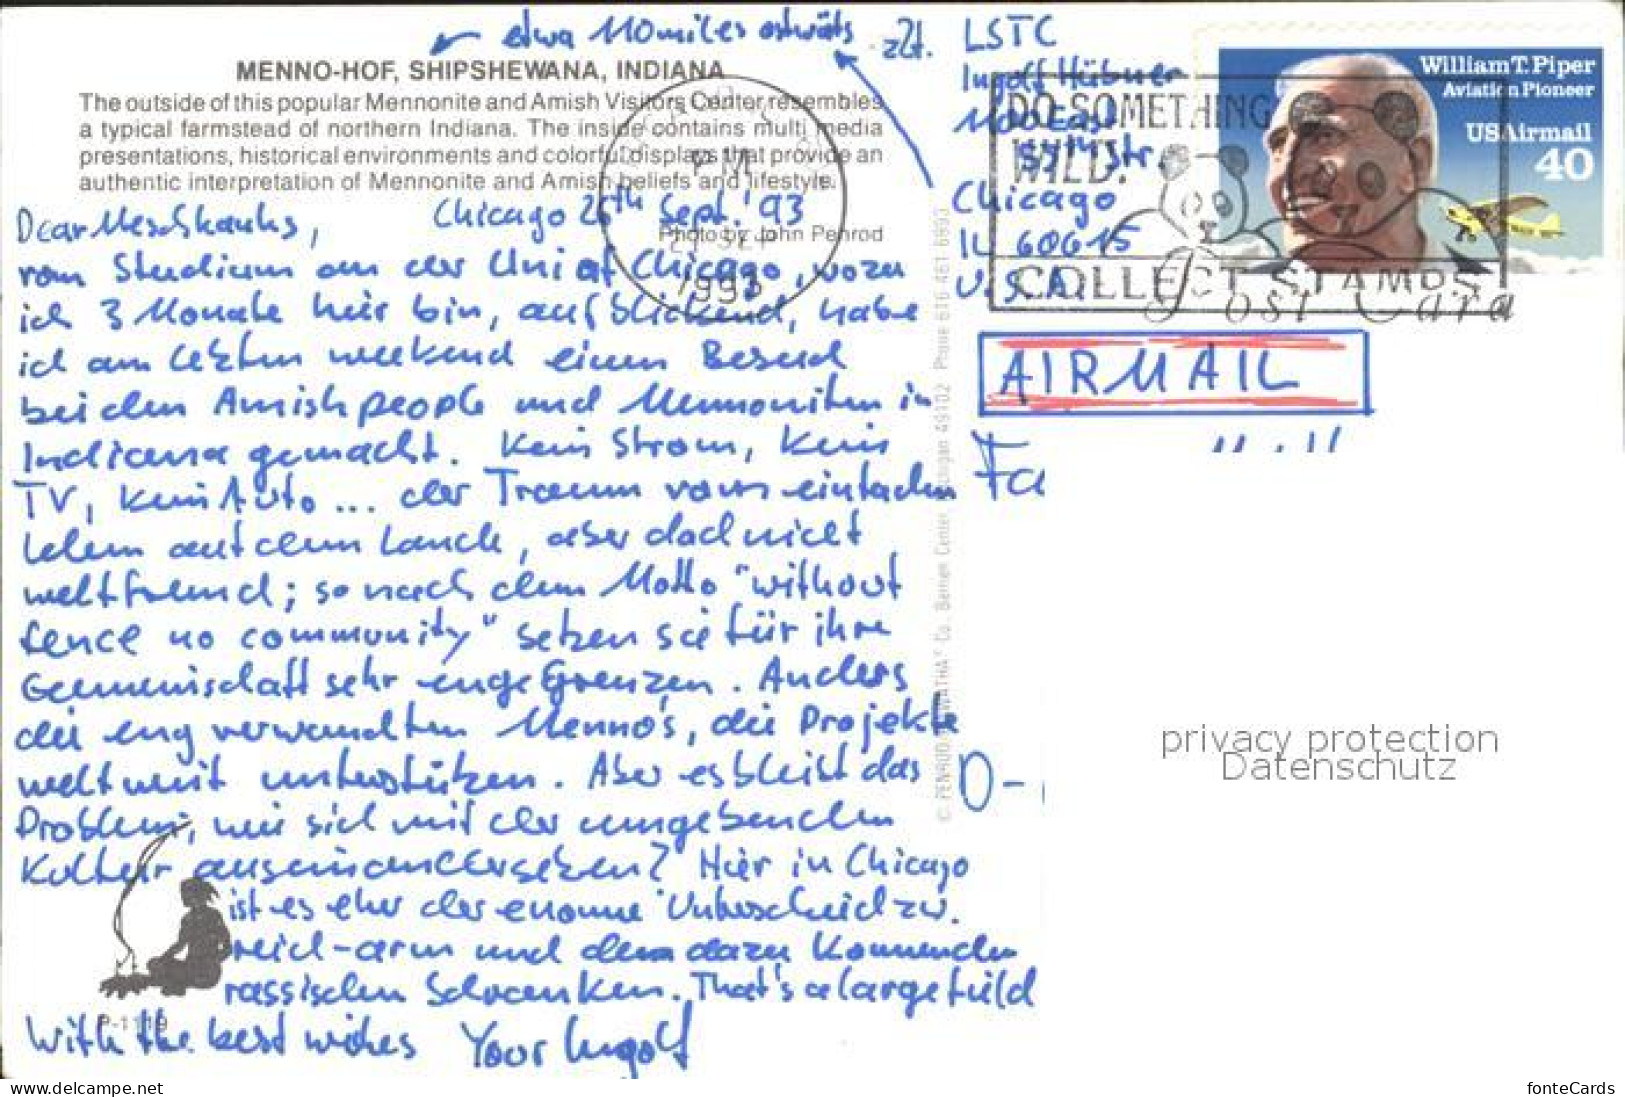 etwa 110 miles ostwärts
MENNO-HOF, SHIPSHEWANA, INDIANA
The outside of this popular Mennonite and Amish Visitors Center resembles
a typical farmstead of northern Indiana. The inside contains multi media
presentations, historical environments and colorful displays that provide an
authentic interpretation of Mennonite and Amish beliefs and lifestyle.
Photo by John Penrod
Chicago 26th Sept. '93
Dear
vom Studium an der Uni of Chicago, wozu
ich 3 Monate hier bin, aufblickend, habe
ich am letzten weekend einen Besuch
bei den Amish people und Mennoniten in
Indiana gemacht. Kein Strom, kein
TV, kein Auto ... der Traum vom einfachen
Leben auf dem Lande, aber doch nicht
weltfremd; so nach dem Motto "without
fence no community" setzen sie für ihre
Gemeinschaft sehr enge Grenzen. Anders
die eng verwandten Menno's, die Projekte
weltweit unterstützen. Aber es bleibt das
Problem, wie sich mit der umgebenden
Kultur auseinandersetzen? Hier in Chicago
ist es eher der enorme Unterschied zw.
reich-arm und den dazu kommenden
rassischen Schranken. That's a large field
With the best wishes Your Ingolf
P-1119
zZt. LSTC
Ingolf Hübner
1100 East
57th Str.
Chicago
IL 60615
U.S.A.
PM
1993
DO SOMETHING
WILD!
COLLECT STAMPS
William T. Piper
Aviation Pioneer
USAirmail
40
Post Card
AIRMAIL
Fa
D-
privacy protection
Datenschutz
www.delcampe.net
fonteCards